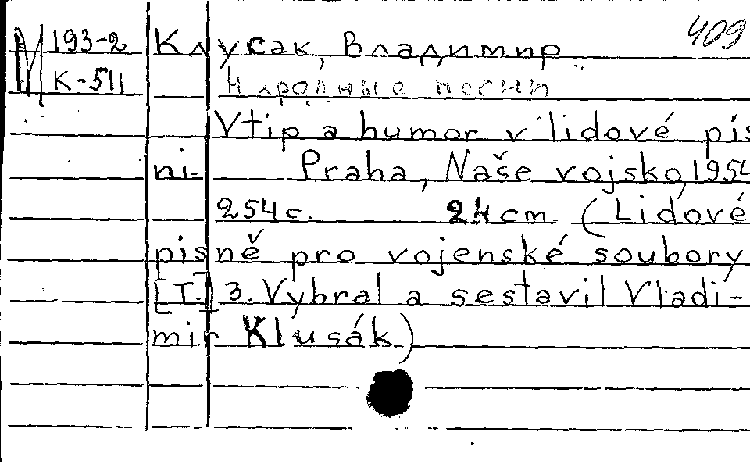 409
193-2 Клусак, Владимир
К-511 Народные песни
Vtip a humor v lidové pís
ni. Praha, Naše vojsko, 1954
254с. 24 cm. (Lidové
pisně pro vojenské soubory
[T.] 3. Vybral a sestavil Vladi-
mir Klusák)